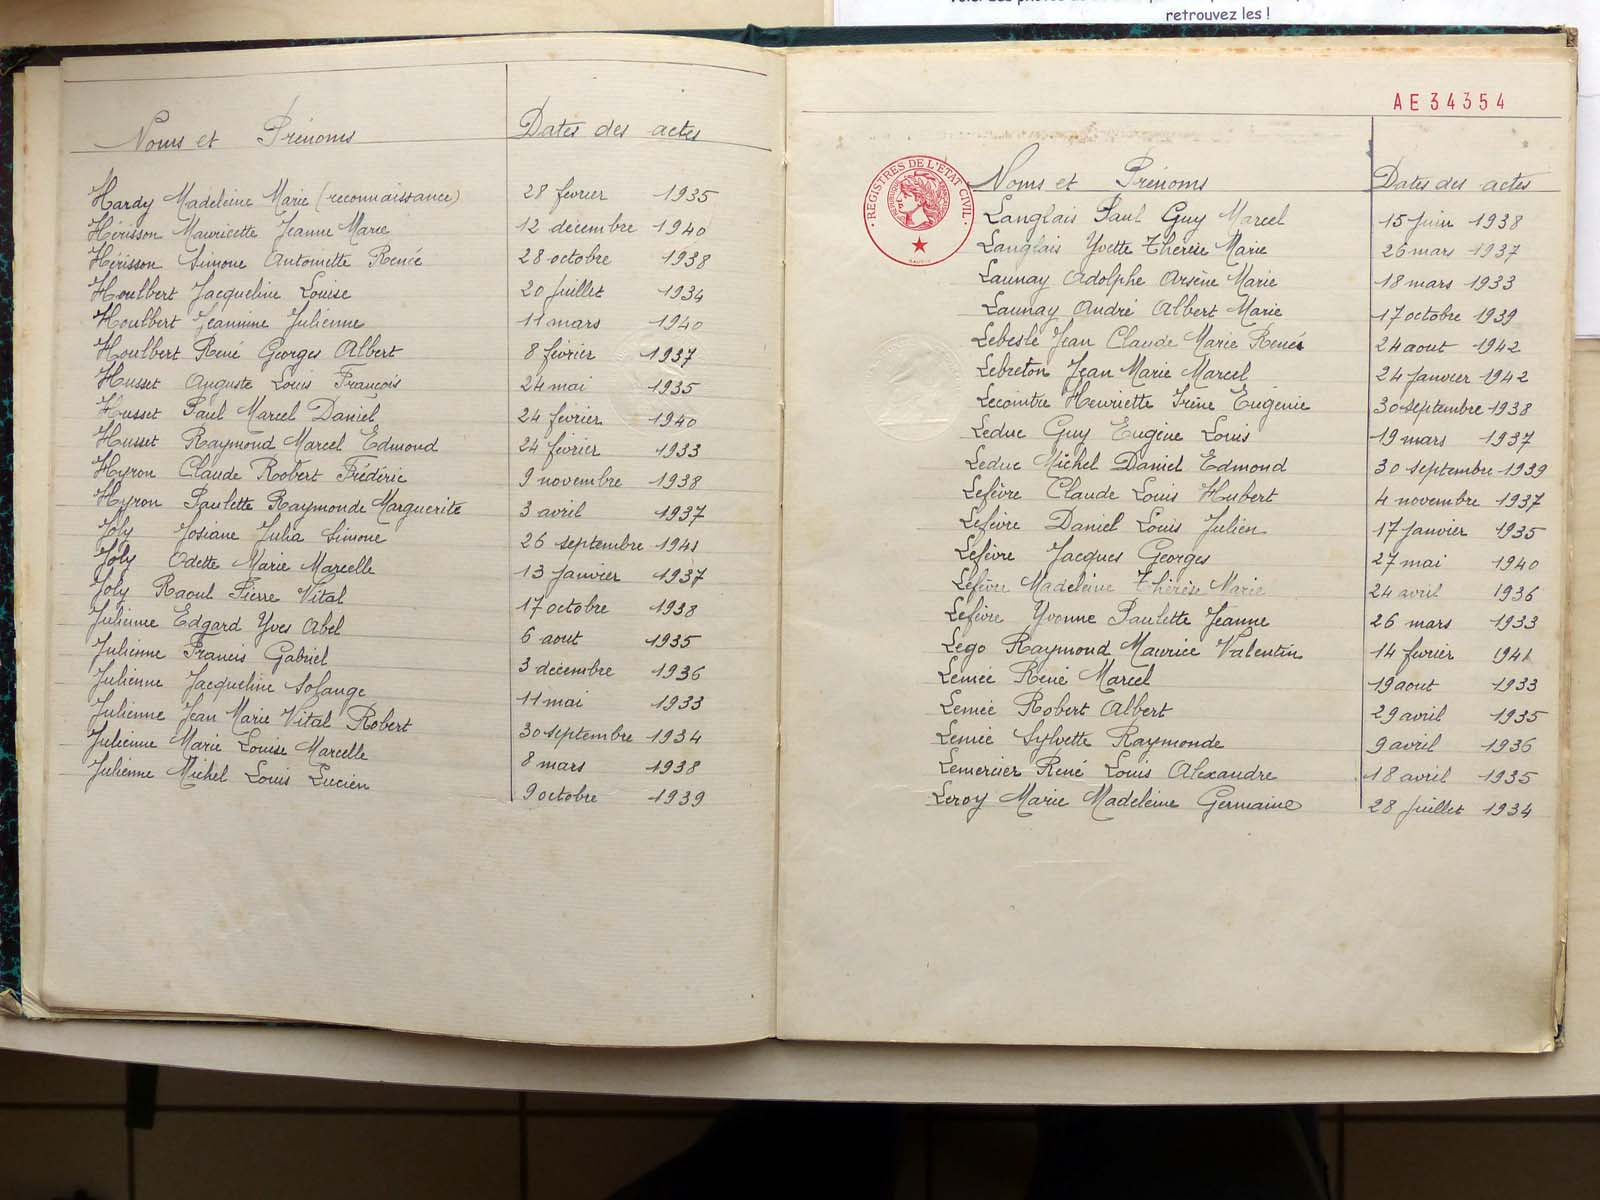 retrouvez les !
Noms et Prénoms Dates des actes
Hardy Madeleine Marie (reconnaissance) 28 février 1935
Hérisson Mauricette Jeanne Marie 12 décembre 1940
Hérisson Simone Antoinette Renée 28 octobre 1938
Houlbert Jacqueline Louise 20 juillet 1934
Houlbert Jeannine Julienne 11 mars 1940
Houlbert René Georges Albert 8 février 1937
Husset Auguste Louis François 24 mai 1935
Husset Paul Marcel Daniel 24 février 1940
Husset Raymond Marcel Edmond 24 février 1933
Hyron Claude Robert Frédéric 9 novembre 1938
Hyron Paulette Raymonde Marguerite 3 avril 1937
Joly Josiane Julia Simone 26 septembre 1941
Joly Odette Marie Marcelle 13 janvier 1937
Joly Raoul Pierre Vital 17 octobre 1938
Julienne Edgard Yves Abel 6 aout 1935
Julienne Francis Gabriel 3 décembre 1936
Julienne Jacqueline Solange 11 mai 1933
Julienne Jean Marie Vital Robert 30 septembre 1934
Julienne Marie Louise Marcelle 8 mars 1938
Julienne Michel Louis Lucien 9 octobre 1939
AE34354
REGISTRES DE L'ÉTAT CIVIL
Noms et Prénoms Dates des actes
Langlais Paul Guy Marcel 15 juin 1938
Langlais Yvette Thérèse Marie 26 mars 1937
Launay Adolphe Arsène Marie 18 mars 1933
Launay André Albert Marie 17 octobre 1939
Lebeslé Jean Claude Marie René 24 aout 1942
Lebreton Jean Marie Marcel 24 janvier 1942
Lecointre Henriette Irène Eugénie 30 septembre 1938
Leduc Guy Eugène Louis 19 mars 1937
Leduc Michel Daniel Edmond 30 septembre 1939
Lefèvre Claude Louis Hubert 4 novembre 1937
Lefèvre Daniel Louis Julien 17 janvier 1935
Lefèvre Jacques Georges 27 mai 1940
Lefèvre Madeleine Thérèse Marie 24 avril 1936
Lefèvre Yvonne Paulette Jeanne 26 mars 1933
Lego Raymond Maurice Valentin 14 février 1941
Lemée René Marcel 19 aout 1933
Lemée Robert Albert 29 avril 1935
Lemée Sylvette Raymonde 9 avril 1936
Lemercier René Louis Alexandre 18 avril 1935
Leroy Marie Madeleine Germaine 28 juillet 1934